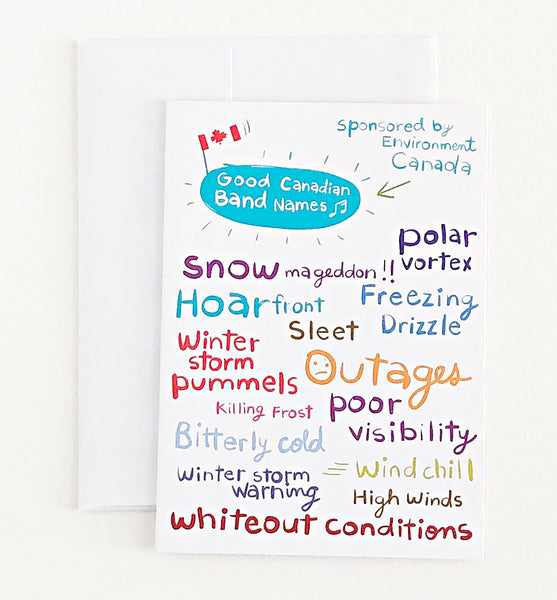 Sponsored by
Environment
Canada
Good Canadian
Band Names
polar
vortex
Snowmageddon!!
Hoarfront
Freezing
Drizzle
Sleet
Winter
storm
pummels
Outages
Killing Frost
poor
visibility
Bitterly cold
Wind chill
Winter storm
warning
High Winds
whiteout conditions